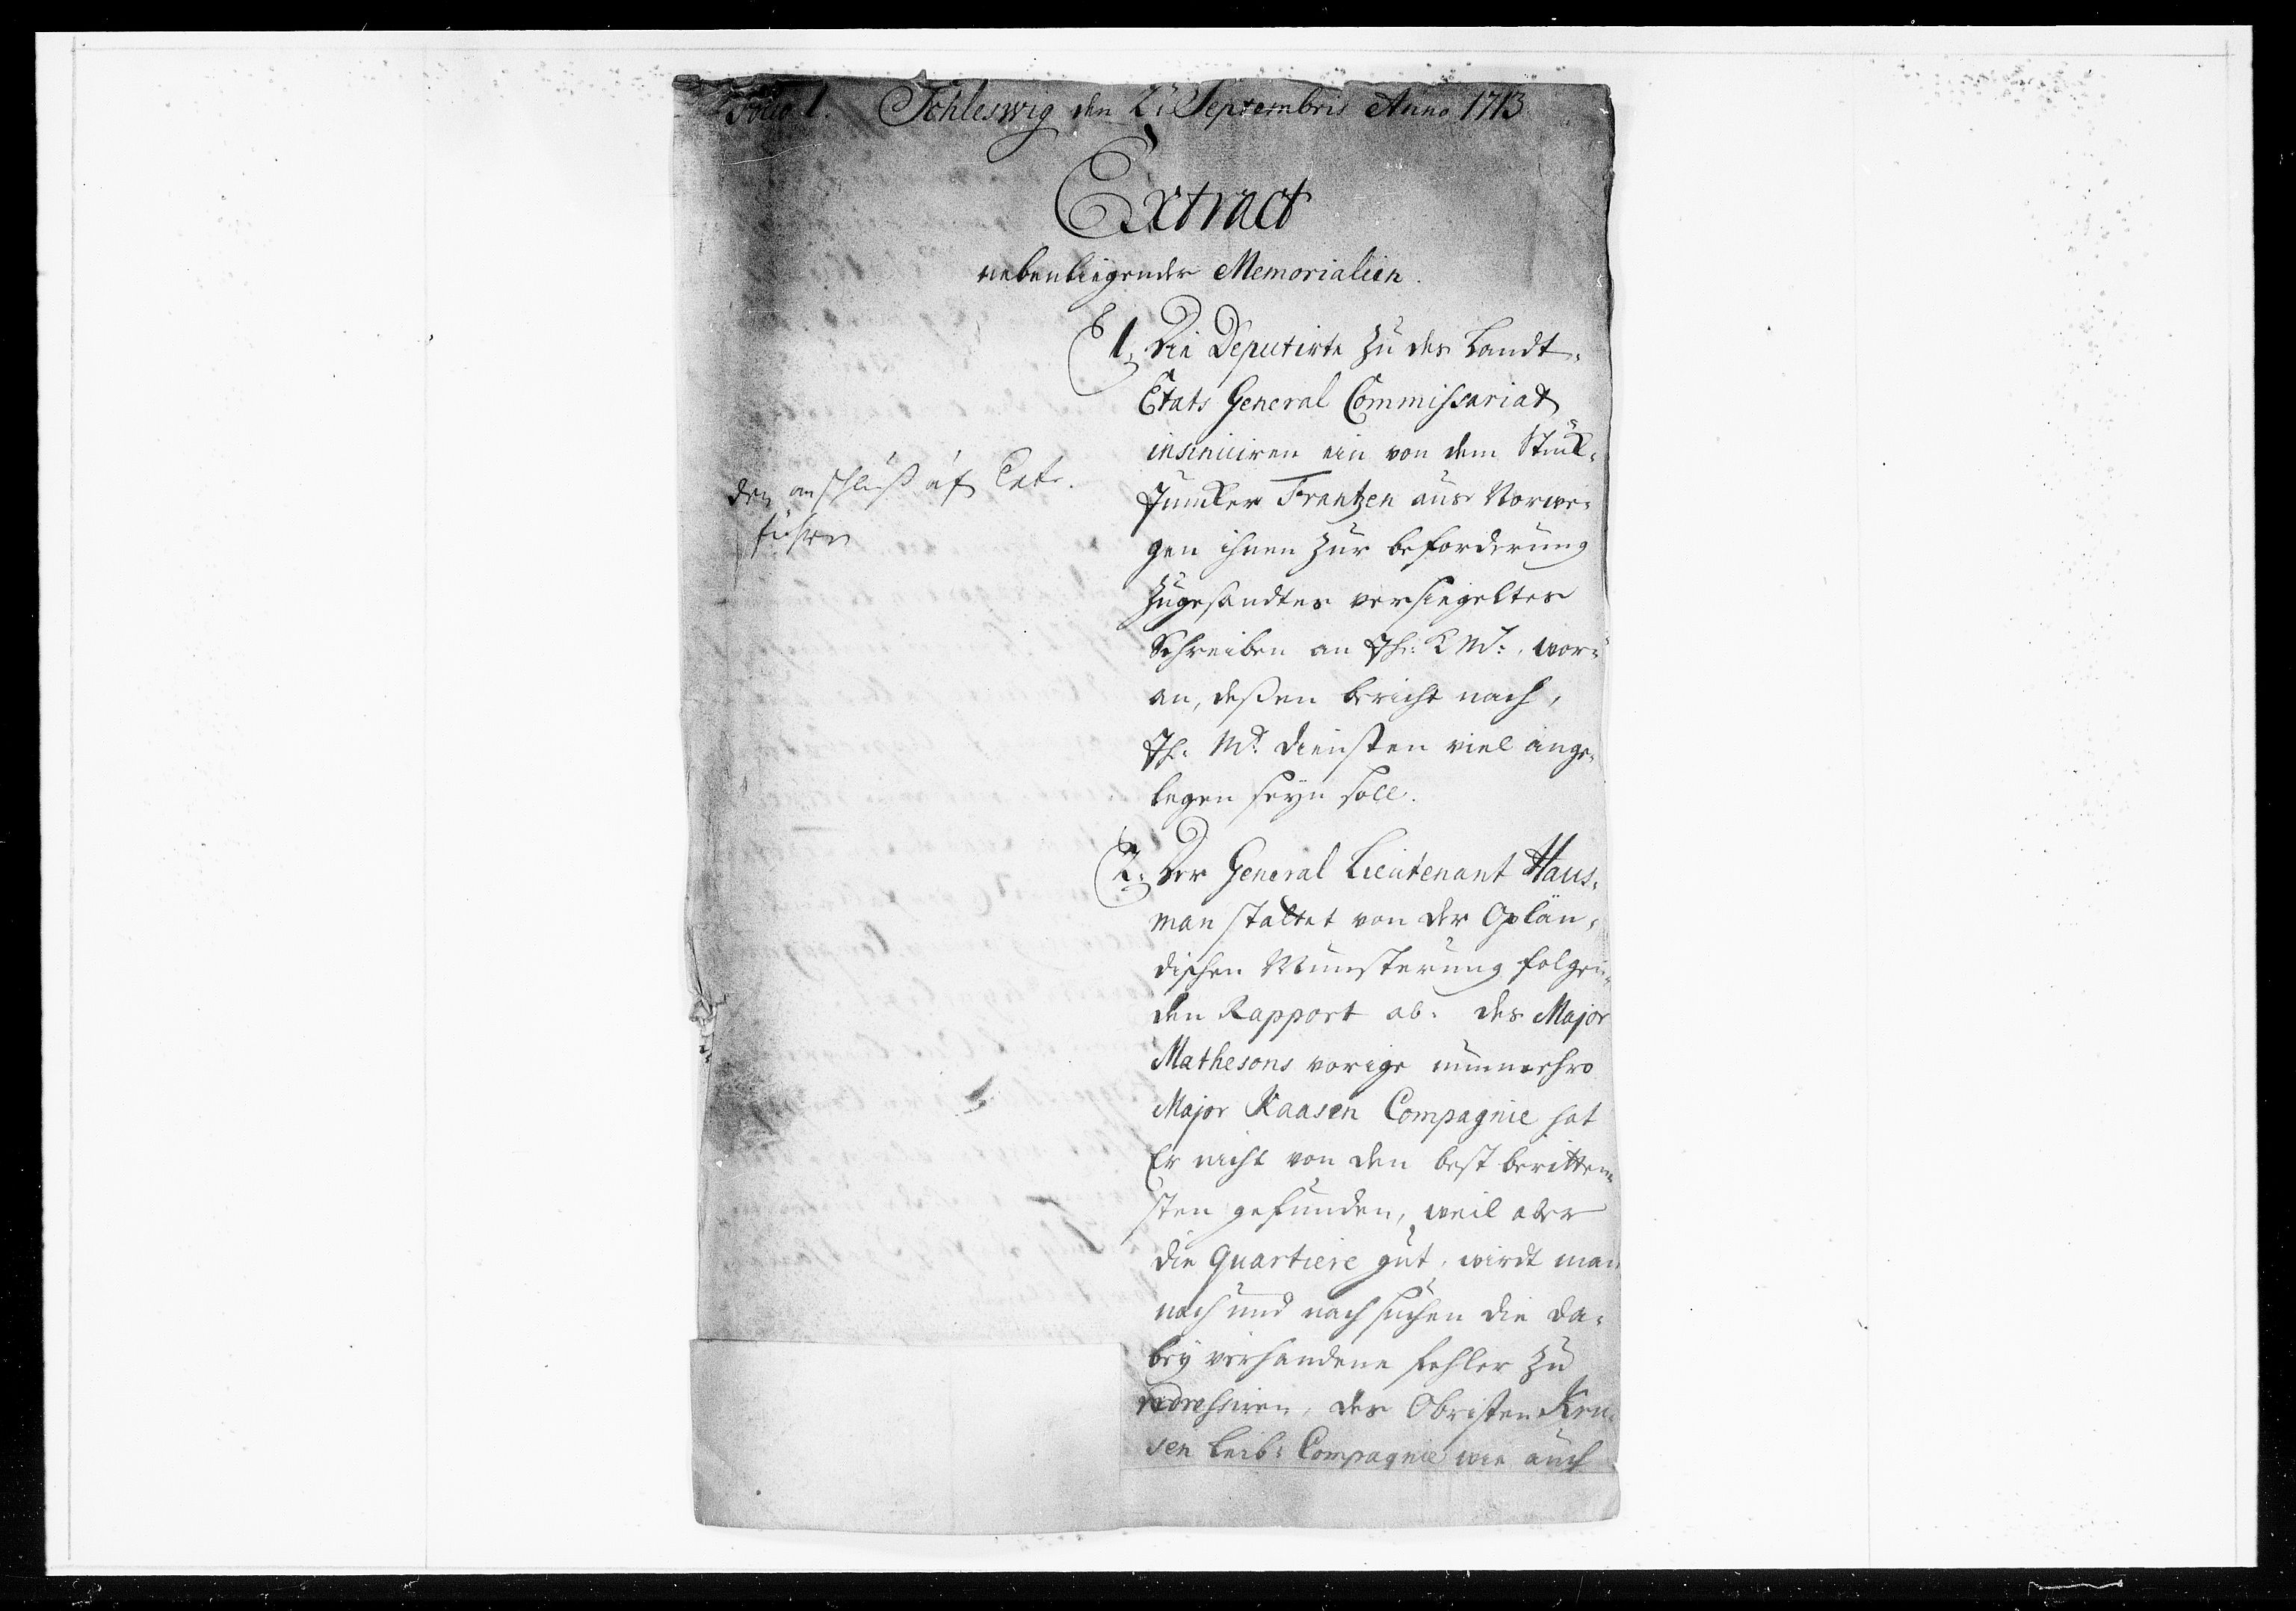 Folio 1. Schleswig den 21 Septembris Anno 1713
Extract
nebenliegender Memorialien.
1. Die Deputirte zu des Landt-
Etats General Commissariat
insinuiren ein von dem Stück-
Junker Frantzen aus Norwe-
gen ihnen zur beforderung
zugesandtes versiegeltes
Schreiben an Ih: K Mt:, wor-
an, deßen bericht nach,
Ih: Mt. diensten viel ange-
legen seyn soll.
den anschluß
führen
2. Der General Lieutenant Haus-
man stattet von der Oplän-
dischen Munsterung folgen-
den Rapport ab. des Major
Mathesons vorige nunmehro
Major Kaasen Compagnie hat
Er nicht von den best beritten-
sten gefunden, weil aber
die Quartiere gut, wirdt man
nach und nach suchen die da-
bey verhandene fehler zu
redressiren, des Obristen Kru-
sen Leib: Compagnie wie auch